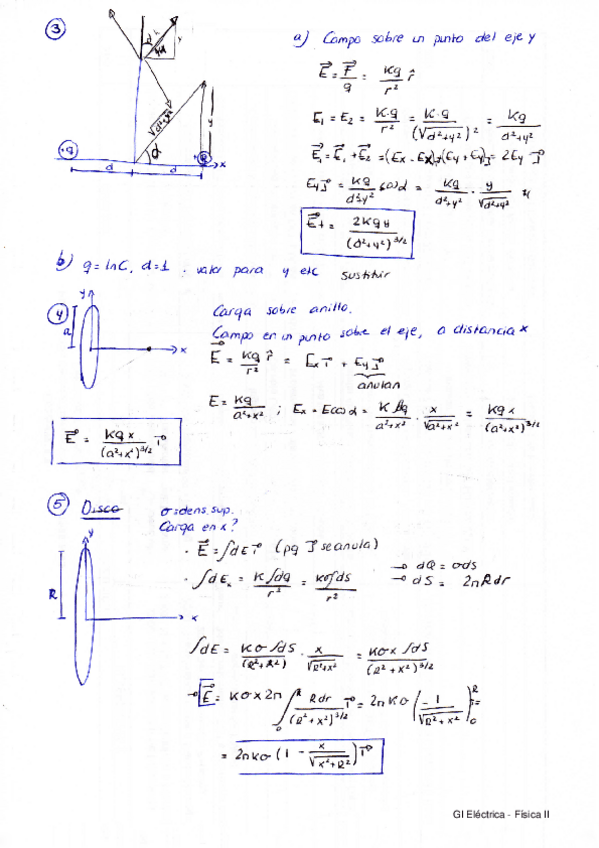 3
a) Campo sobre un punto del eje y
E⃗ = F⃗/q = Kq/r² r̂
E₁ = E₂ = K·q/r² = K·q/(√d²+y²)² = Kq/d²+y²
+q
d
d
α
x
√d²+y²
E⃗₁ = E⃗₁ + E⃗₂ = (Ex - Ex) + (Ey + Ey)j⃗ = 2Ey j⃗
Ey j⃗ = Kq/d²+y² cosα = Kq/d²+y² · y/√d²+y²
E⃗t = 2Kqy/(d²+y²)^3/2
b) q = 1nC, d=1 . valor para y etc sustituir
4
y
a
x
Carga sobre anillo.
Campo en un punto sobre el eje, a distancia x
E⃗ = Kq/r² r̂ = Ex i⃗ + Ey j⃗
anulan
E = Kq/a²+x² ; Ex = Ecosα = K∫dq/a²+x² · x/√a²+x² = Kqx/(a²+x²)^3/2
E⃗ = Kqx/(a²+x²)^3/2 i⃗
5 Disco
σ=dens.sup.
Carga en x?
y
R
x
· E⃗ = ∫dE i⃗ (pq j⃗ se anula)
· ∫dEx = K∫dq/r² = Kσ∫ds/r²
→ dQ = σds
→ dS = 2πRdr
∫dE = Kσ∫dS/(R²+R²) · x/√R²+x² = Kσx∫dS/(R²+x²)^3/2
→ E⃗ = Kσx2π ∫₀^R Rdr/(R²+x²)^3/2 i⃗ = 2πKσ (-1/√R²+x²)₀^R =
= 2πKσ (1 - x/√x²+R²) i⃗
GI Eléctrica - Física II